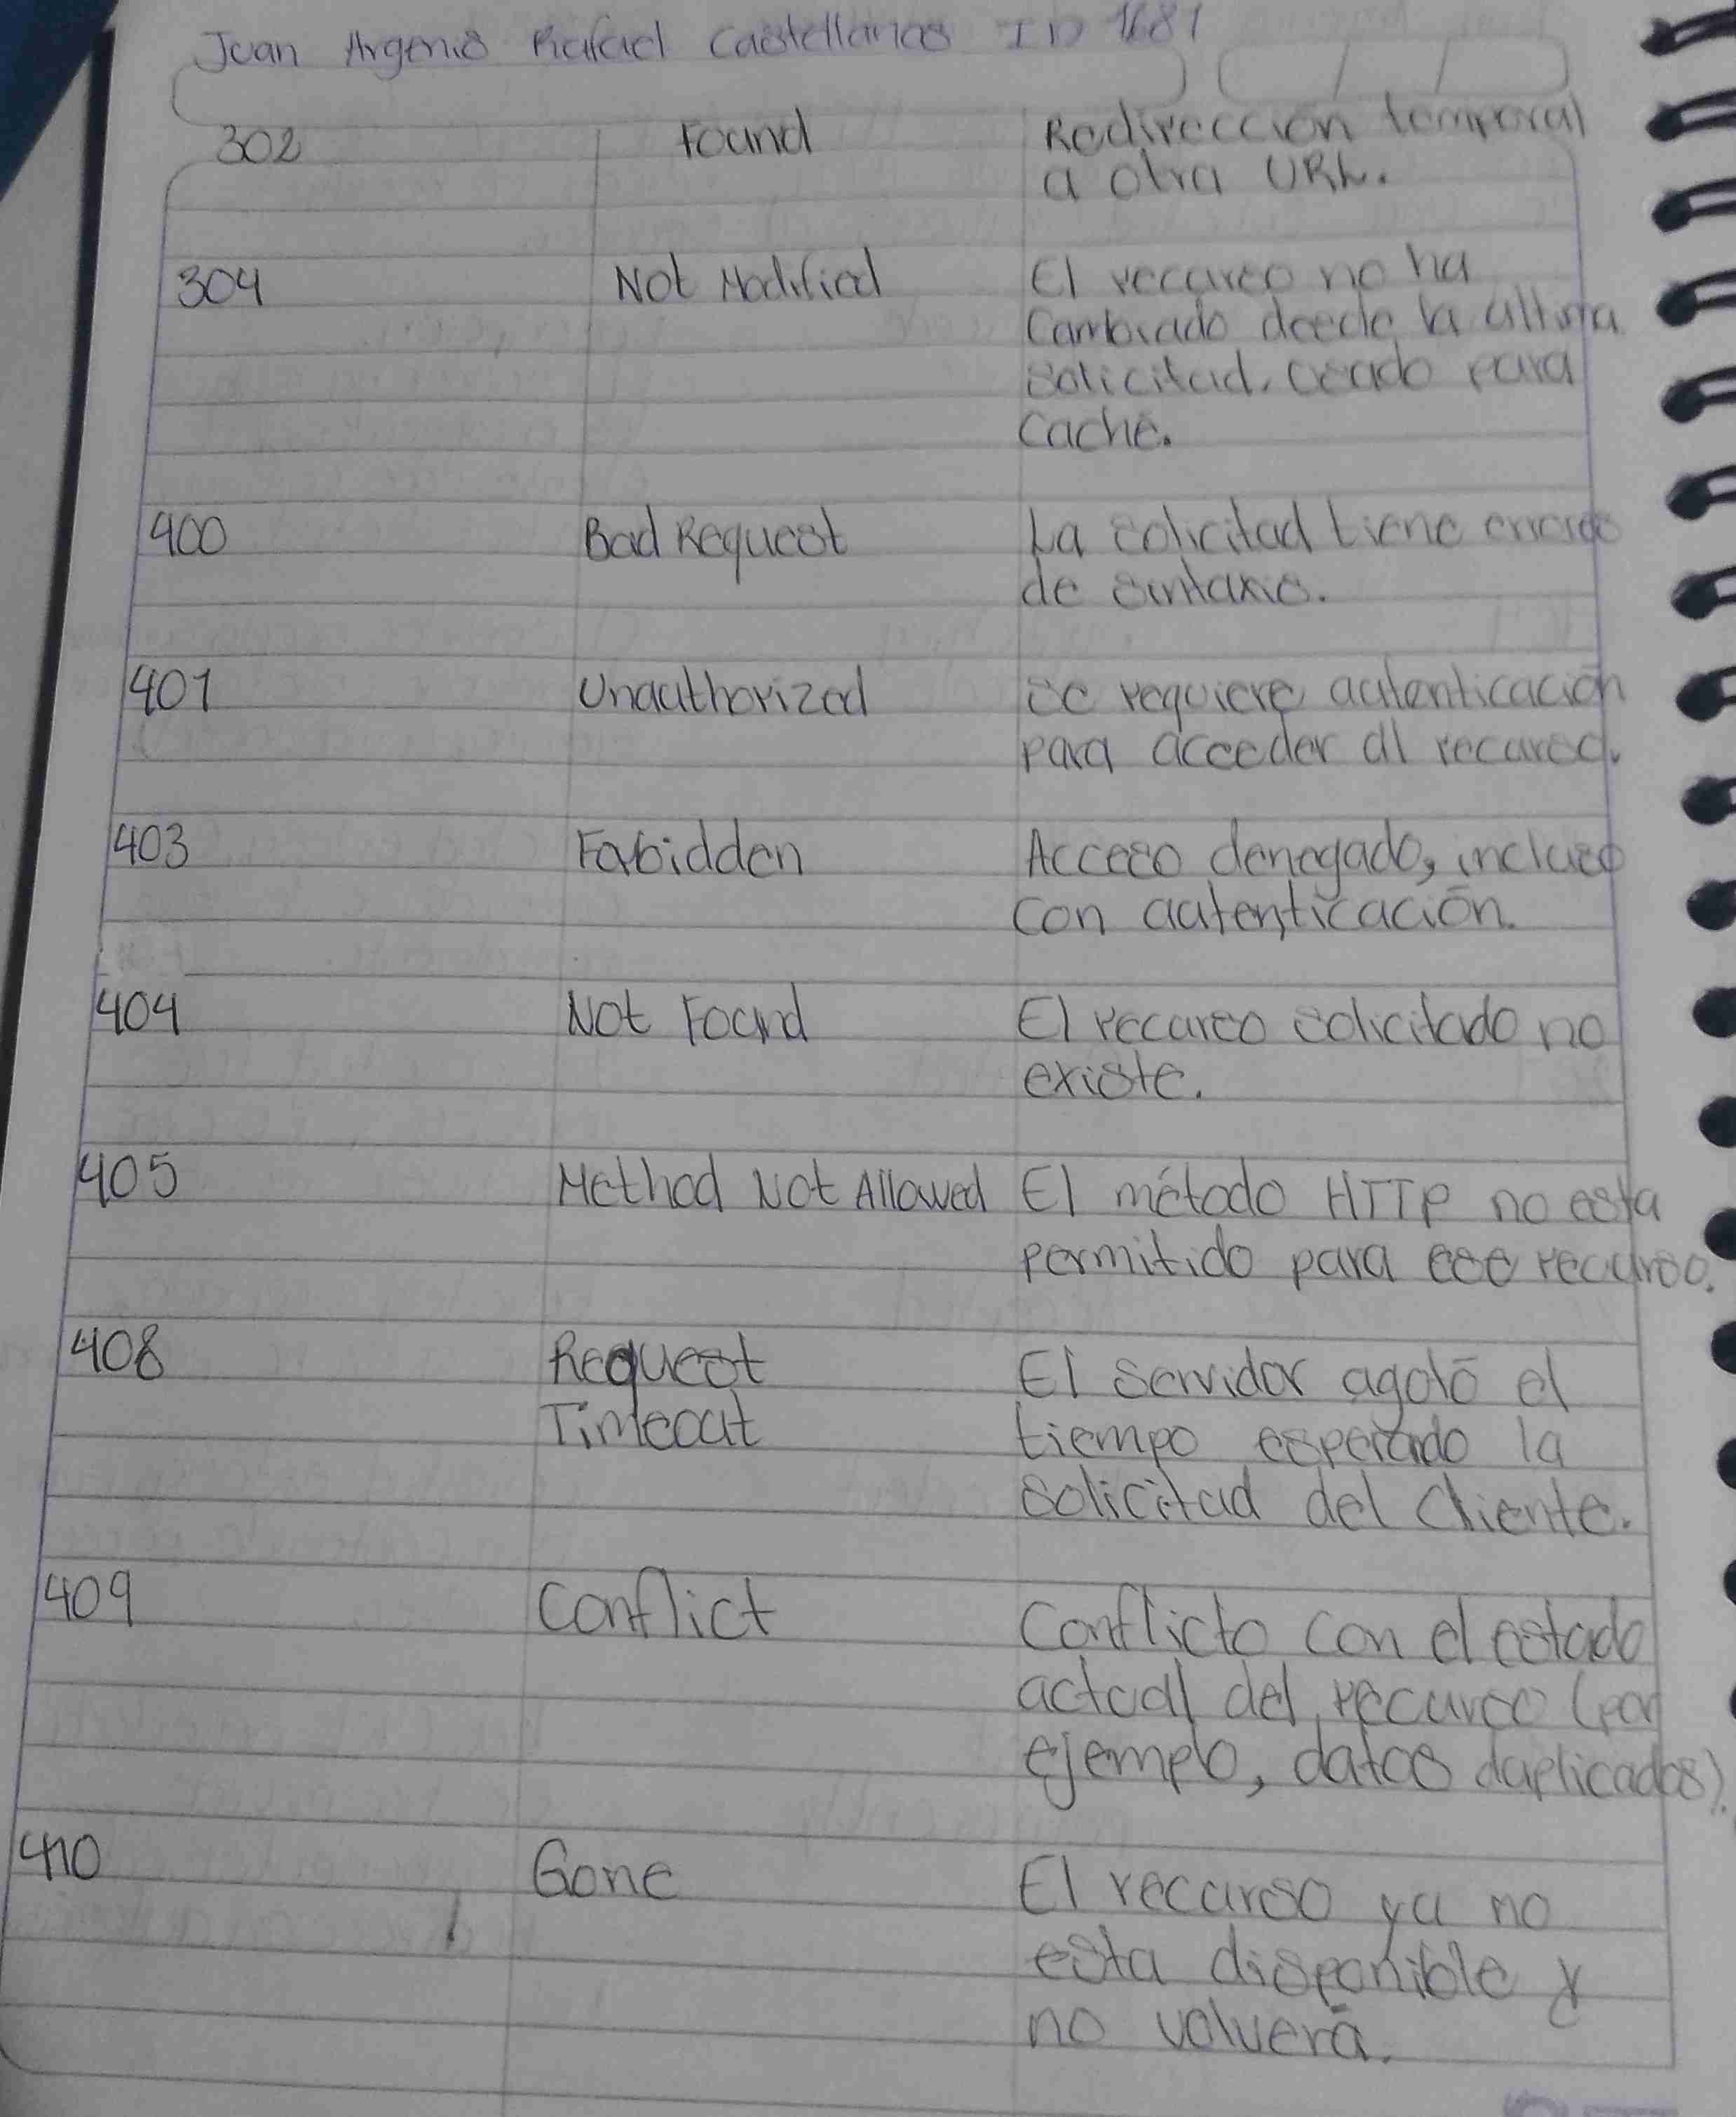 Juan Argenis Rafael Castellanos ID 1681
302 Found Redirección temporal
a otra URL.
304 Not Modified El recurso no ha
Cambiado desde la ultima
solicitud. Usado para
Caché.
400 Bad Request La solicitud tiene errores
de sintaxis.
401 Unauthorized Se requiere autenticación
para acceder al recurso.
403 Forbidden Acceso denegado, incluso
Con autenticación.
404 Not Found El recurso solicitado no
existe.
405 Method Not Allowed El método HTTP no esta
permitido para ese recurso.
408 Request El servidor agotó el
Timeout tiempo esperando la
solicitud del Cliente.
409 Conflict Conflicto Con el estado
actual del recurso (por
ejemplo, datos duplicados).
410 Gone El recurso ya no
esta disponible y
no volverá.